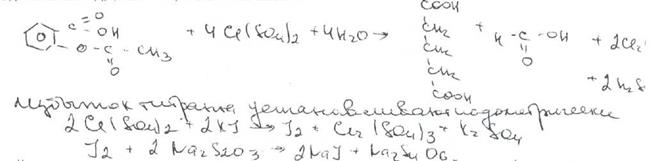 C=O OH O-C-CH3 O + 4 Ce(SO4)2 + 4H2O → COOH CH2 CH2 CH2 CH2 COOH + H-C-OH O + 2Ce2
+ 2H2S
избыток титранта устанавливают иодометрически
2 Ce(SO4)2 + 2KJ → J2 + Ce2(SO4)3 + K2SO4
J2 + 2 Na2S2O3 → 2NaJ + Na2S4O6.